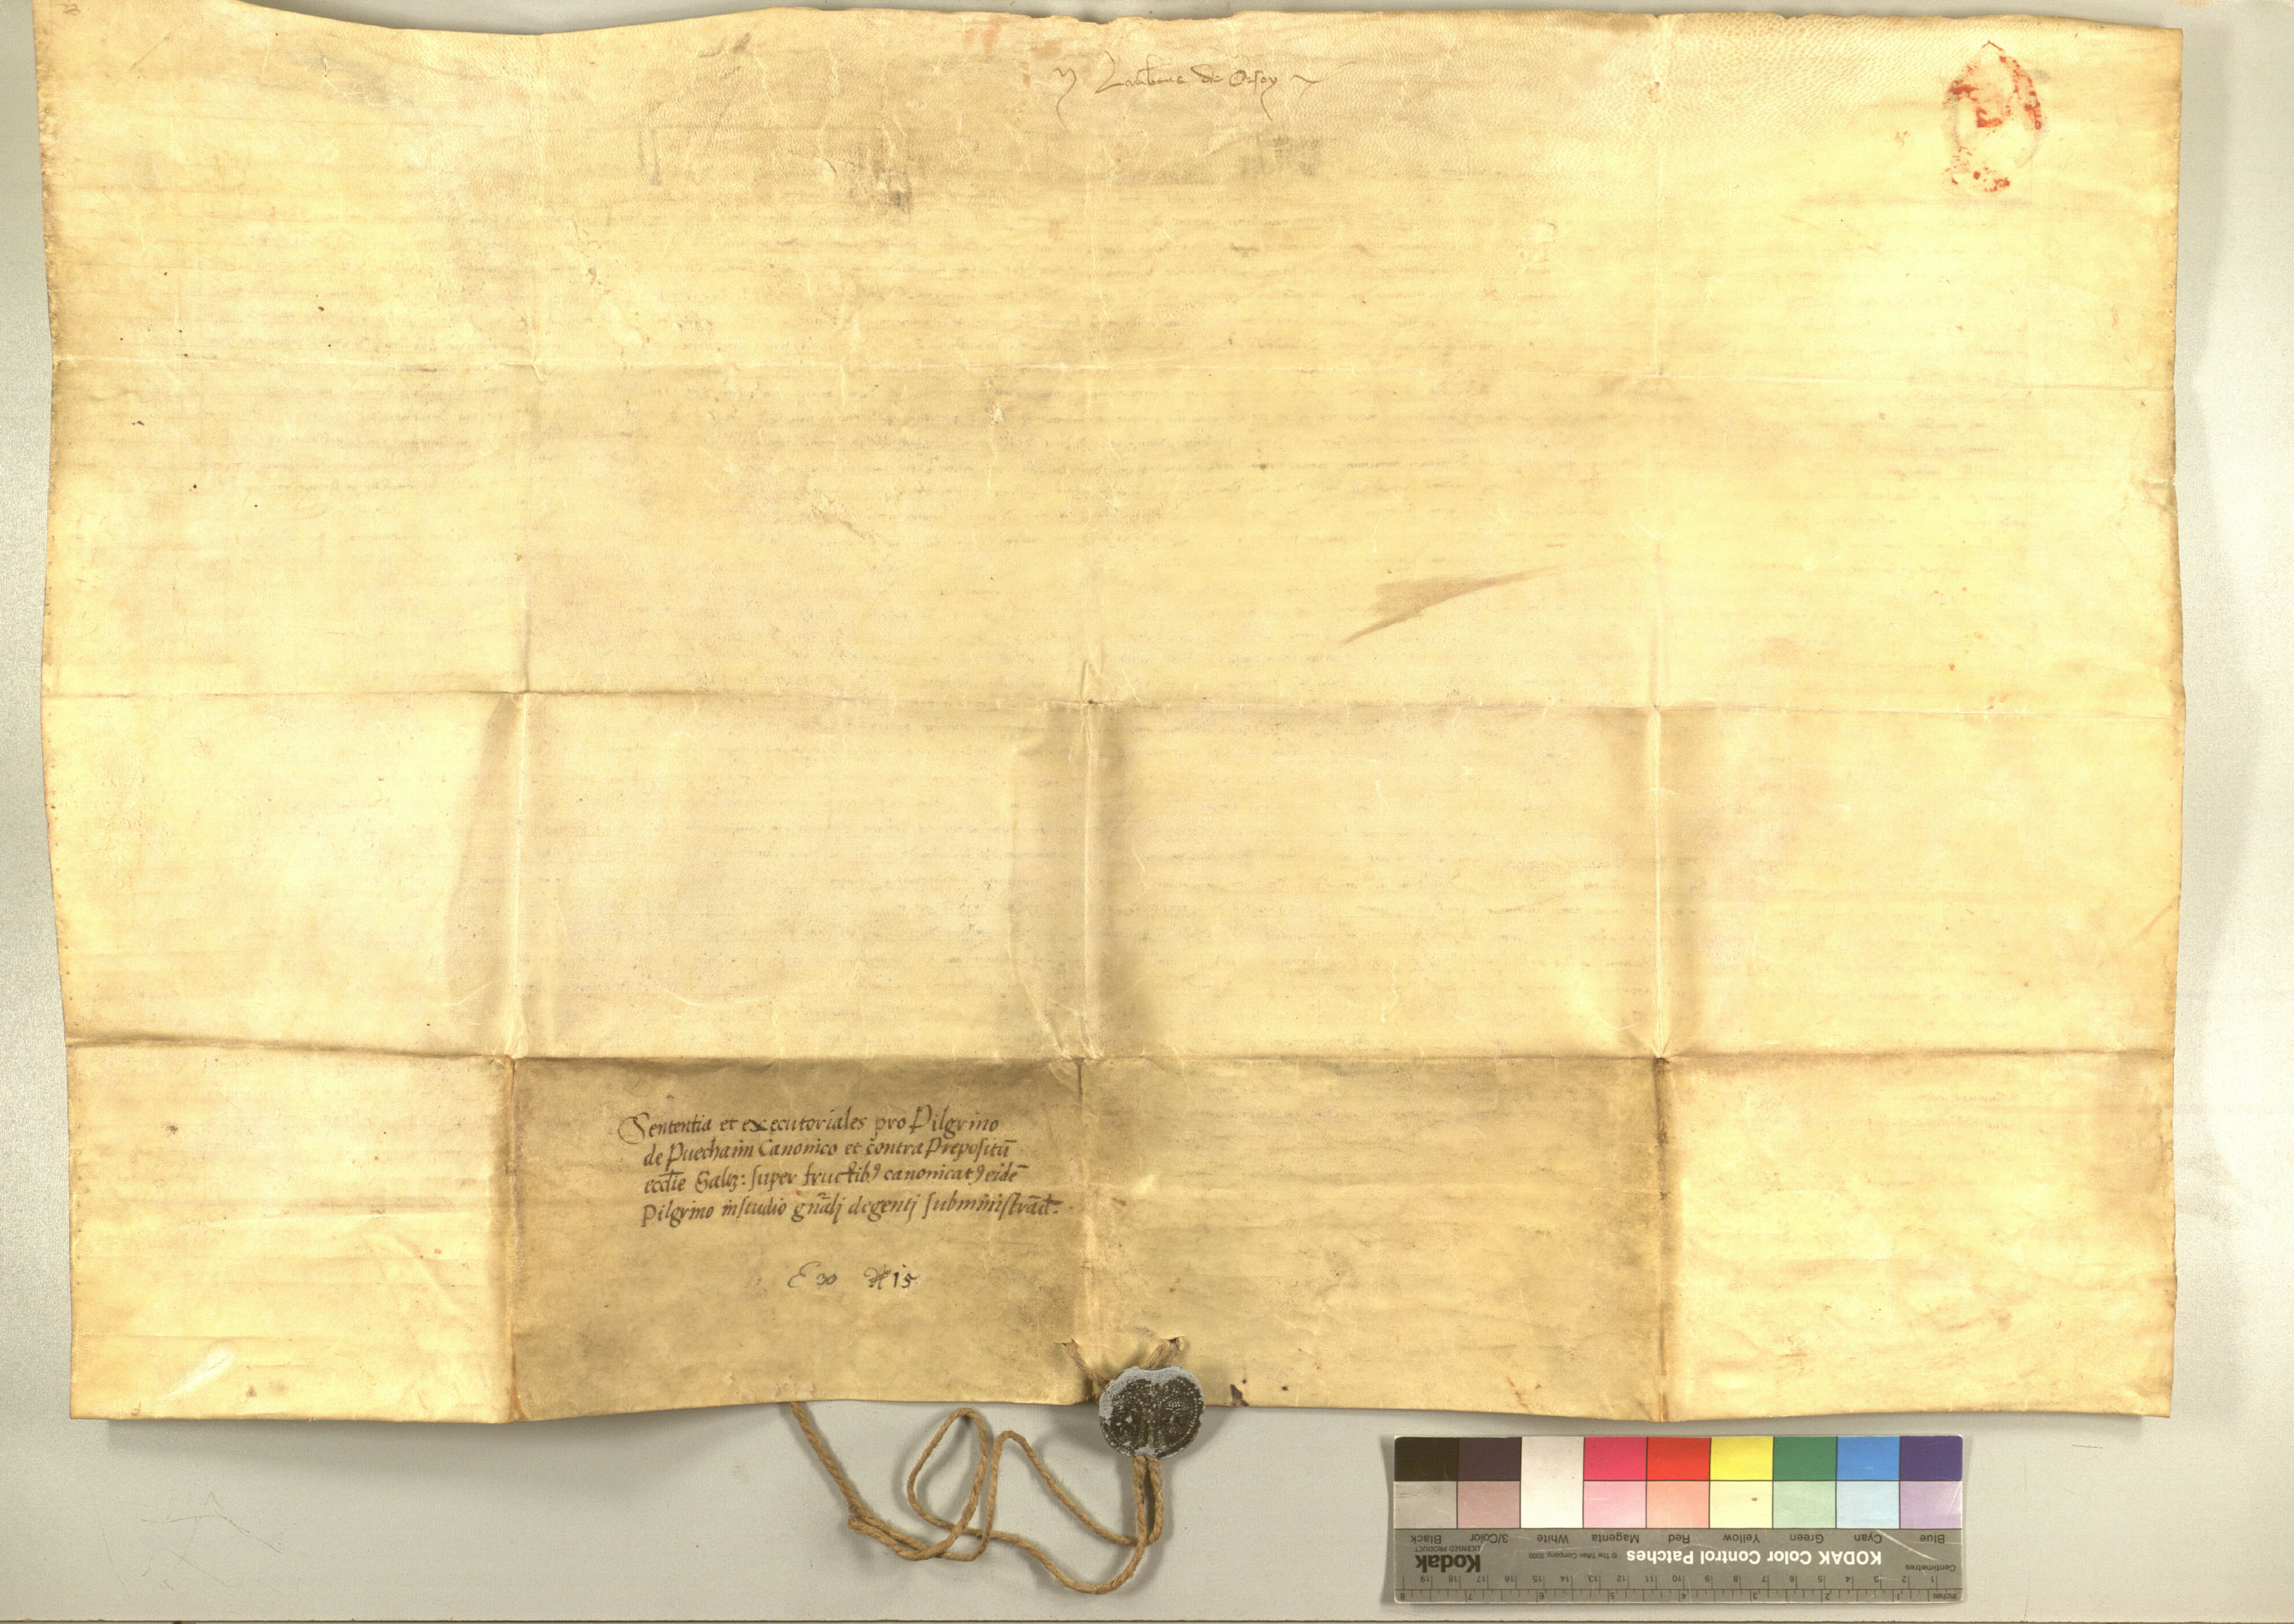 de Orsoy
Sententia et executoriales pro Pilgrimo
de Puechaim Canonico et contra Prepositū
eccl̄ie Salcz: super fructibꝰ canonicatꝰ eidē
Pilgrimo in studio gn̄alj degentj subministrād.
15
Blue Cyan Green Yellow Red Magenta White 3/Color Black
KODAK Color Control Patches © The Tiffen Company, 2000 Kodak
LICENSED PRODUCT
Centimetres 1 2 3 4 5 6 7 8 9 10 11 12 13 14 15 16 17 18 19
Inches 1 2 3 4 5 6 7 8